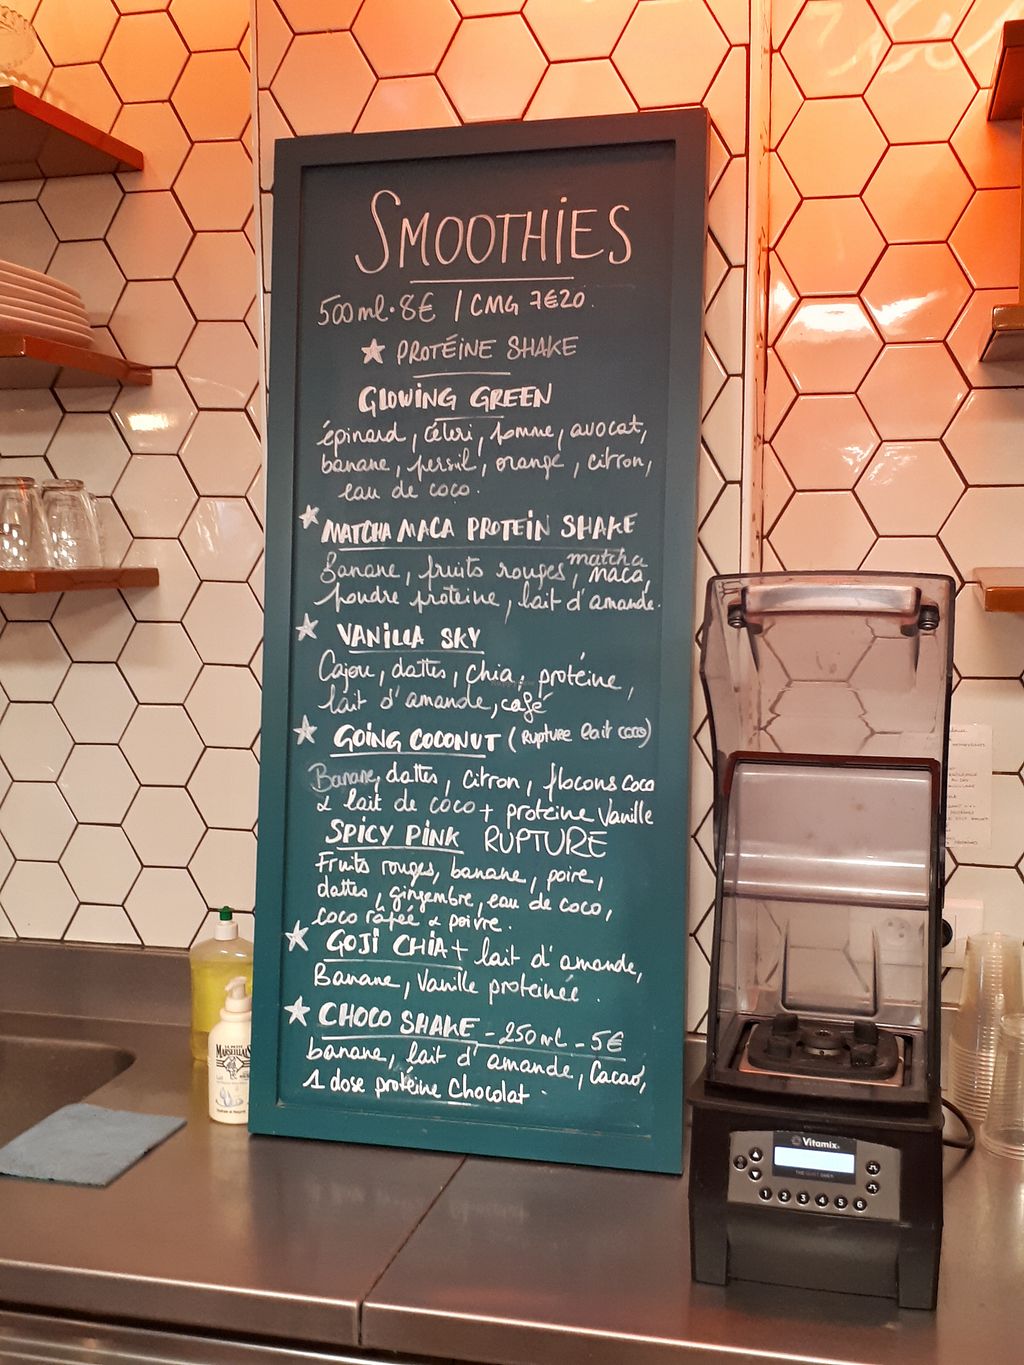 SMOOTHIES
500ml. 8€ / CMG 7€20.
★ PROTÉINE SHAKE
GLOWING GREEN
épinard, céleri, pomme, avocat,
banane, persil, orange, citron,
eau de coco.
★ MATCHA MACA PROTEIN SHAKE
matcha
Banane, fruits rouges, maca,
poudre proteine, lait d'amande.
★ VANILLA SKY
Cajou, dattes, chia, protéine,
lait d'amande, café
★ GOING COCONUT (Rupture lait coco)
Banane, dattes, citron, flocons coco
& lait de coco + proteine Vanille
SPICY PINK RUPTURE
Fruits rouges, banane, poire,
dattes, gingembre, eau de coco,
coco râpée & poivre.
★ GOJI CHIA + lait d'amande,
Banane, Vanille proteinée.
★ CHOCO SHAKE - 250ml - 5€
banane, lait d'amande, Cacao,
1 dose protéine Chocolat.
LE PETIT
MARSEILLAIS
Vitamix
THE QUIET ONE
1 2 3 4 5 6